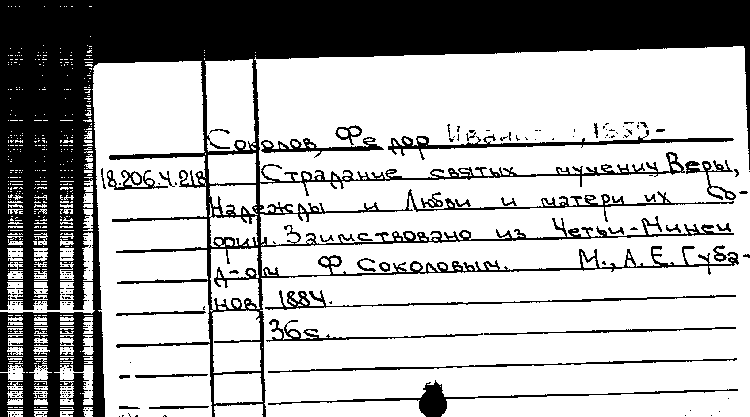 Соколов, Федор 1859-
18.206.4.218 Страдание святых мучениц Веры,
Надежды и Любви и матери их Со-
фии. Заимствовано из Четьи-Минеи
д-ом Ф. Соколовым. М., А. Е. Губа-
нов, 1884.
36 с.